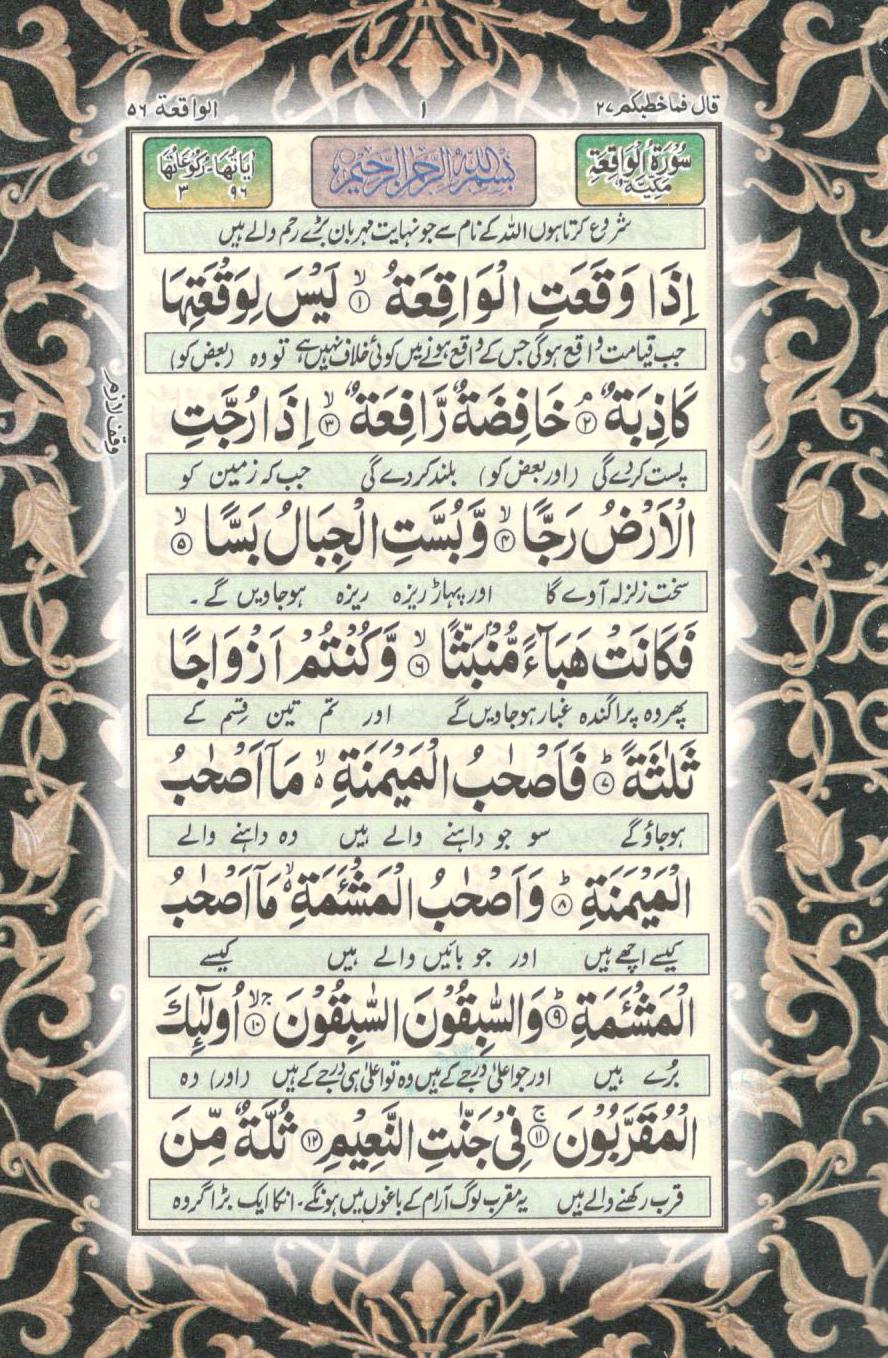 قال فما خطبكم ٢٧ ١ الواقعة ٥٦
سُوْرَةُ الْوَاقِعَةِ مَكِّيَّةٌ بِسْمِ اللّٰهِ الرَّحْمٰنِ الرَّحِيْمِ اٰيَاتُهَا ٩٦ رُكُوْعَاتُهَا ٣
شروع کرتا ہوں اللہ کے نام سے جو نہایت مہربان بڑے رحم والے ہیں
اِذَا وَقَعَتِ الْوَاقِعَةُ ۙ۝١ لَيْسَ لِوَقْعَتِهَا
جب قیامت واقع ہوگی جس کے واقع ہونے میں کوئی خلاف نہیں ہے تو وہ (بعض کو)
وقف لازم
كَاذِبَةٌ ۘ۝٢ خَافِضَةٌ رَّافِعَةٌ ۙ۝٣ اِذَا رُجَّتِ
پست کردے گی (اور بعض کو) بلند کردے گی جب کہ زمین کو
الْاَرْضُ رَجًّا ۙ۝٤ وَّبُسَّتِ الْجِبَالُ بَسًّا ۙ۝٥
سخت زلزلہ آوے گا اور پہاڑ ریزہ ریزہ ہوجاویں گے۔
فَكَانَتْ هَبَآءً مُّنْۢبَثًّا ۙ۝٦ وَّكُنْتُمْ اَزْوَاجًا
پھر وہ پراگندہ غبار ہوجاویں گے اور تم تین قسم کے
ثَلٰثَةً ؕ۝٧ فَاَصْحٰبُ الْمَيْمَنَةِ ۙ۬ مَاۤ اَصْحٰبُ
ہوجاؤ گے سو جو داہنے والے ہیں وہ داہنے والے
الْمَيْمَنَةِ ؕ۝٨ وَاَصْحٰبُ الْمَشْـَٔمَةِ ۙ۬ مَاۤ اَصْحٰبُ
کیسے اچھے ہیں اور جو بائیں والے ہیں کیسے
الْمَشْـَٔمَةِ ؕ۝٩ وَالسّٰبِقُوْنَ السّٰبِقُوْنَ ۚۙ۝١٠ اُولٰٓئِكَ
برے ہیں اور جو اعلیٰ درجے کے ہیں وہ تو اعلیٰ ہی درجے کے ہیں (اور) وہ
الْمُقَرَّبُوْنَ ۚ۝١١ فِيْ جَنّٰتِ النَّعِيْمِ ۝١٢ ثُلَّةٌ مِّنَ
قرب رکھنے والے ہیں یہ مقرب لوگ آرام کے باغوں میں ہونگے۔ انکا ایک بڑا گروہ